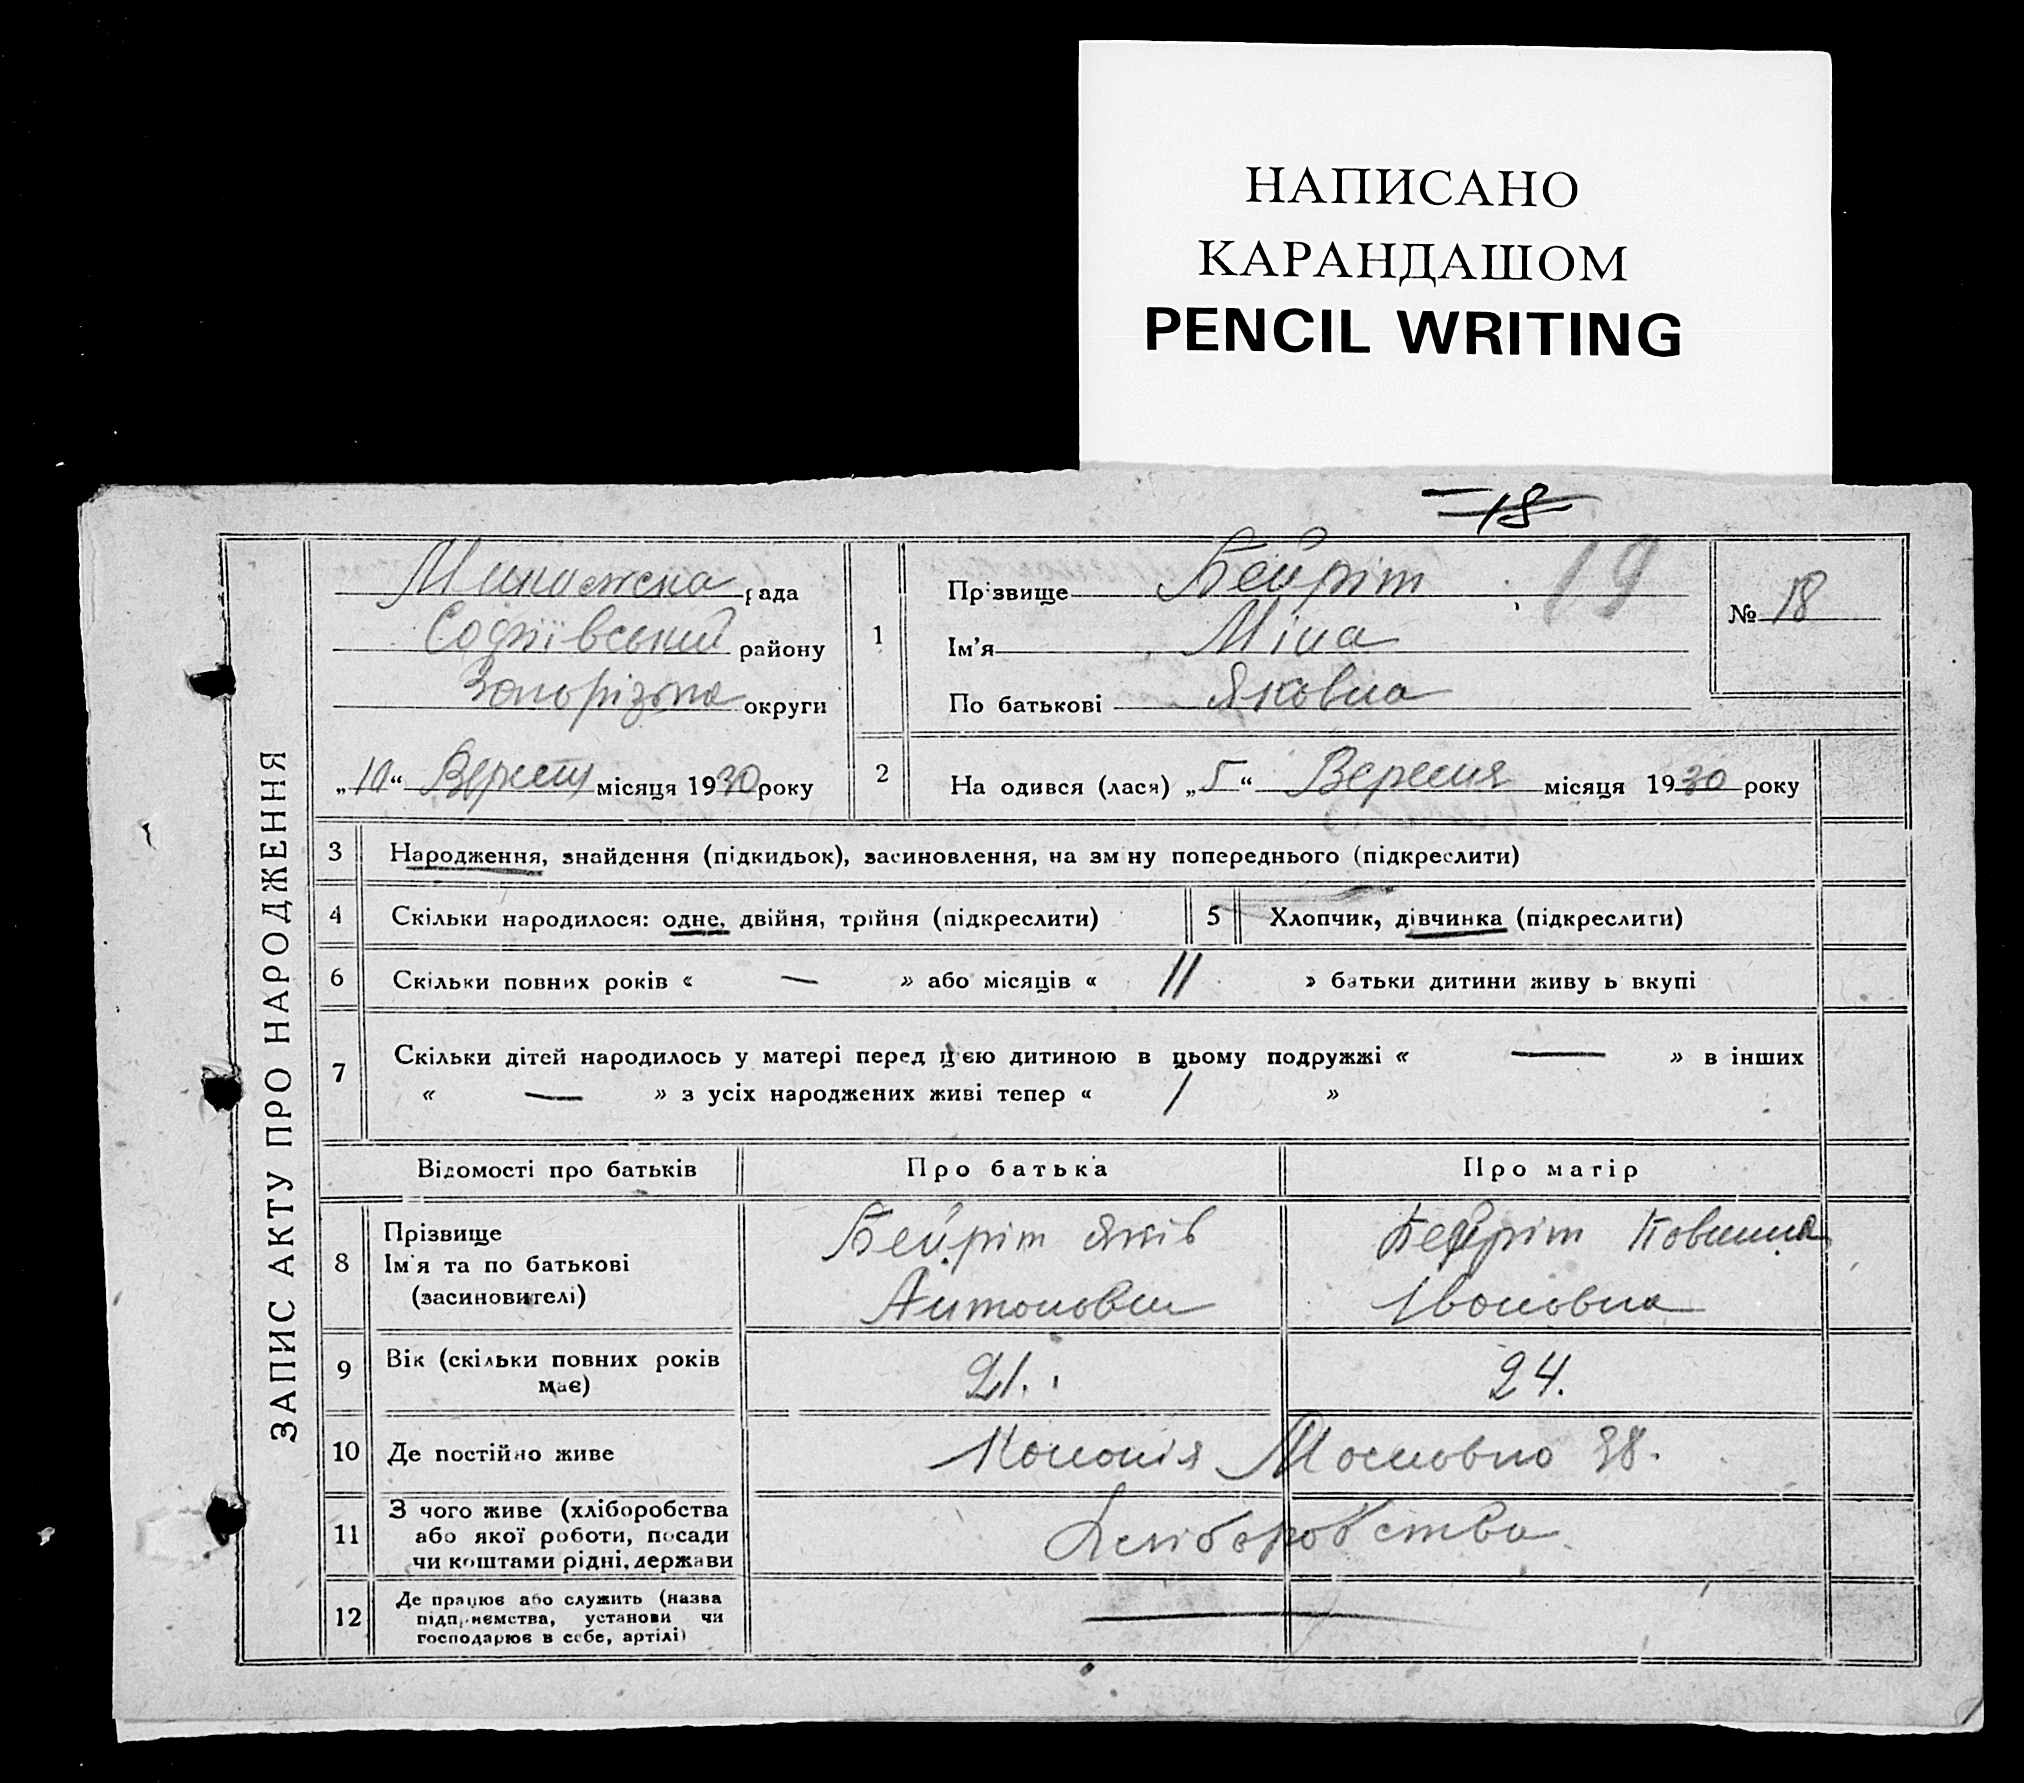 НАПИСАНО
КАРАНДАШОМ
PENCIL WRITING
18
ЗАПИС АКТУ ПРО НАРОДЖЕННЯ
рада
Софіївський району
Запорізька округи
„10“ Вересня місяця 1930 року
1
Прізвище Бейріт 19
Ім'я Міна
По батькові Яковна
№ 18
2 На одився (лася) „5“ Вересня місяця 1930 року
3 Народження, знайдення (підкидьок), засиновлення, на зм ну попереднього (підкреслити)
4 Скільки народилося: одне, двійня, трійня (підкреслити)
5 Хлопчик, дівчинка (підкреслити)
6 Скільки повних років « — » або місяців « 11 » батьки дитини живу ь вкупі
7 Скільки дітей народилось у матері перед цією дитиною в цьому подружжі « — » в інших
« — » з усіх народжених живі тепер « 1 »
Відомості про батьків Про батька Про матір
8 Прізвище
Ім'я та по батькові
(засиновителі)
Бейріт Яків
Антонович
Бейріт
Івановна
9 Вік (скільки повних років
має)
21.
24.
10 Де постійно живе
Колонія 38.
11 З чого живе (хліборобства
або якої роботи, посади
чи коштами рідні, держави
Хліборобства
12 Де працює або служить (назва
підприємства, установи чи
господарює в себе, артілі)
—